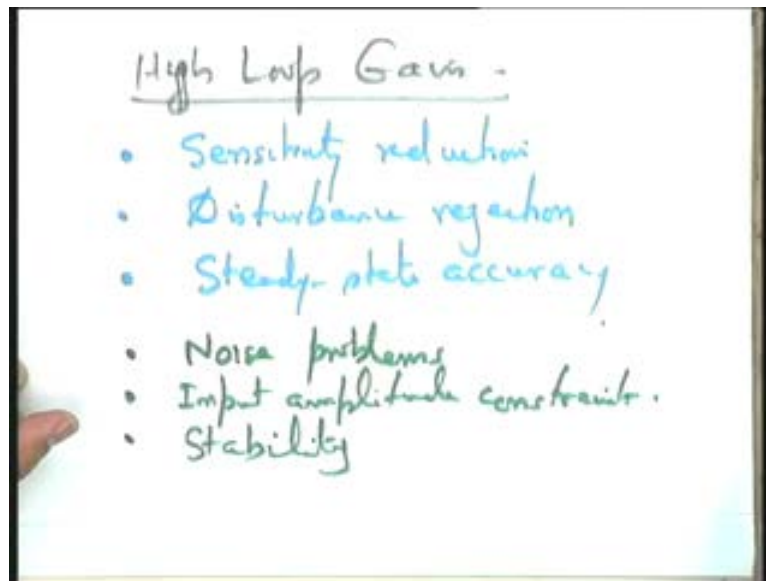 High Loop Gain.
• Sensitivity reduction
• Disturbance rejection
• Steady-state accuracy
• Noise problems
• Input amplitude constraints.
• Stability